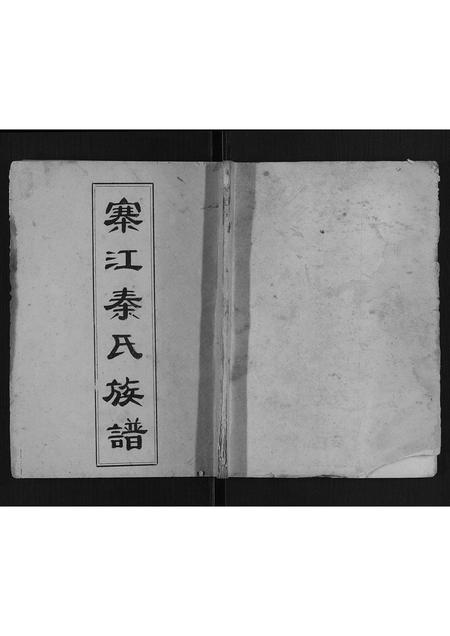 寨江秦氏族譜